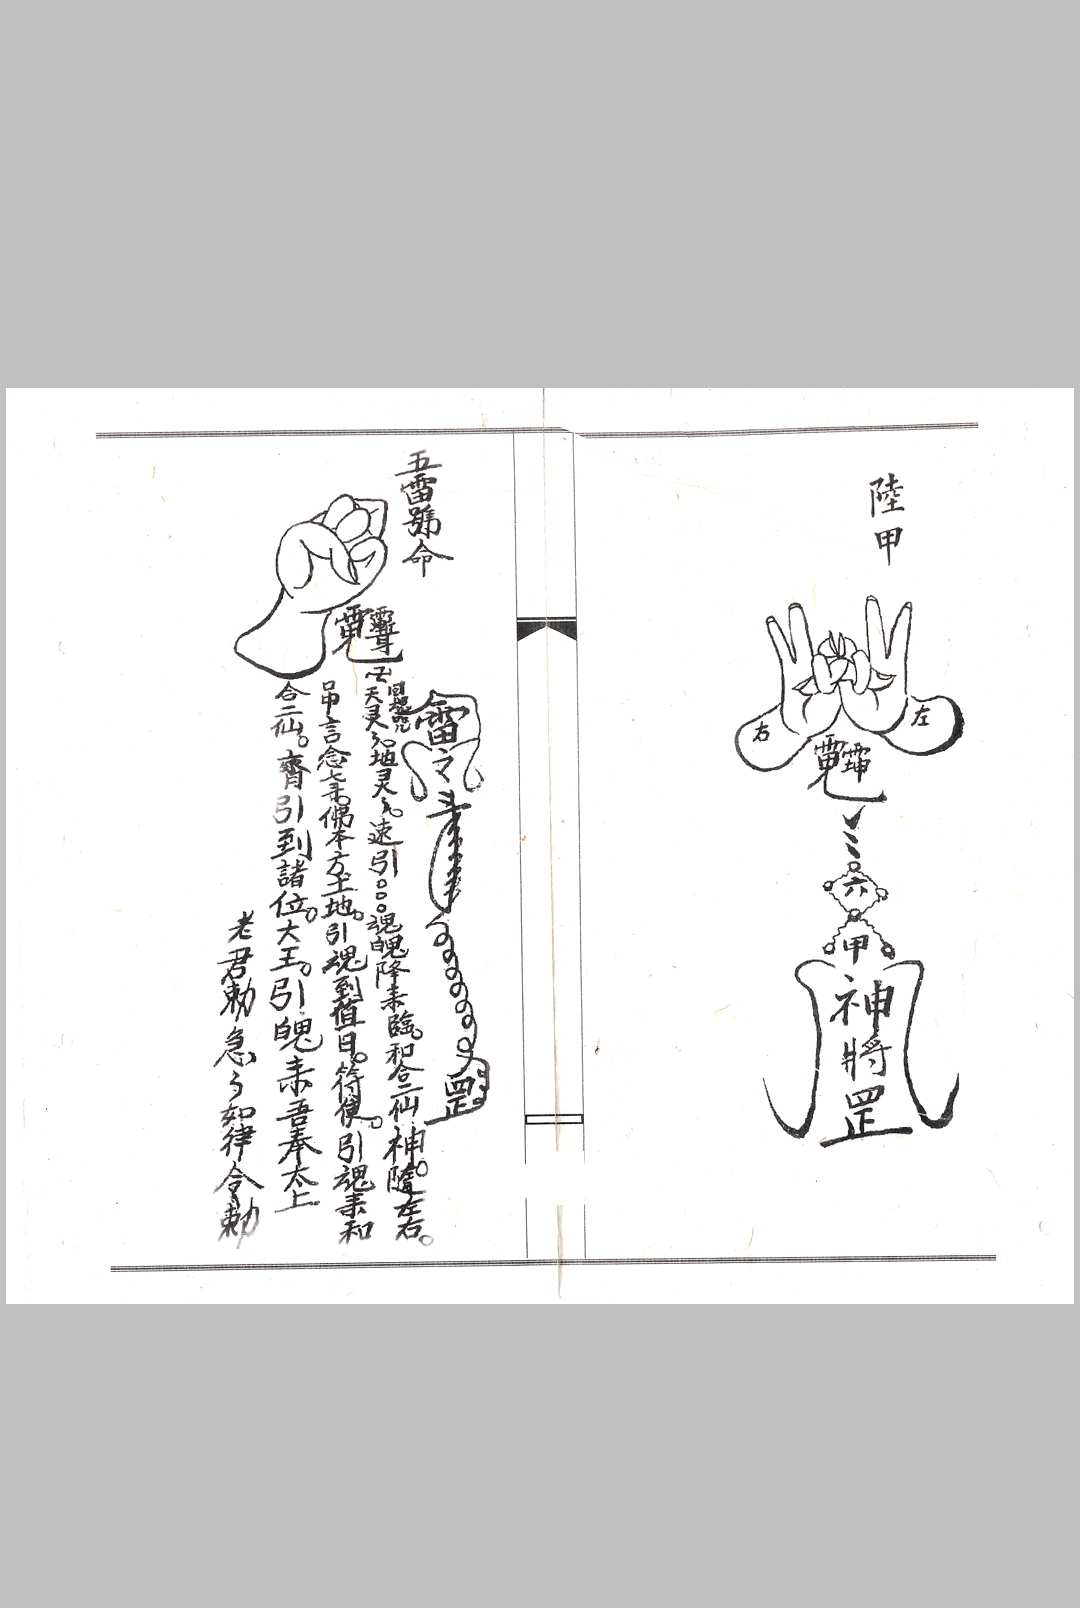 陸甲
左
右
六
甲
神將罡
五雷號命
雷令
罡
天灵灵地灵灵速引。。。魂魄降来臨。和合二仙神。隨左右。
言念 佛本方土地。引魂到值日。符使。引魂来和
合二仙。齊引到諸位。大王。引魄来吾奉太上
老君勅急々如律令勅